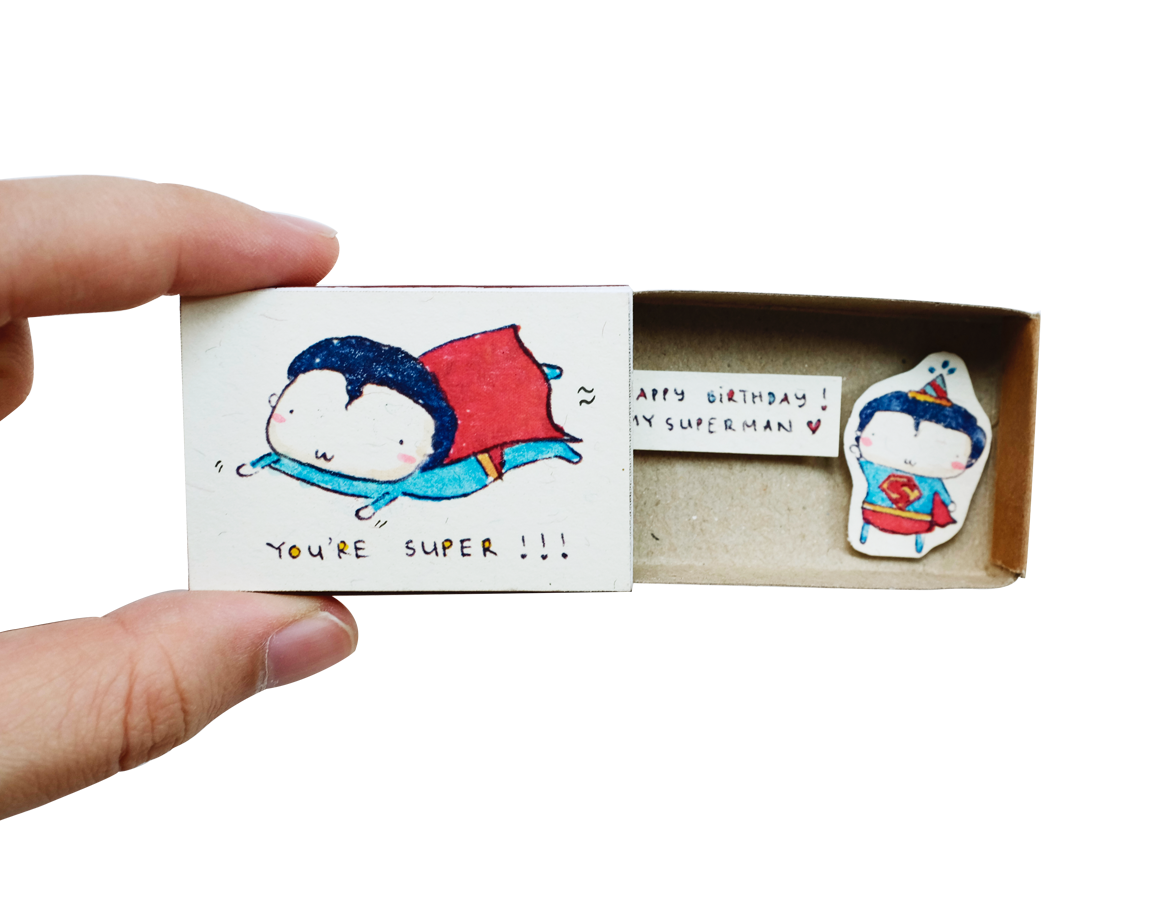 YOU'RE SUPER !!!
APPY BIRTHDAY !
MY SUPERMAN ♥
S